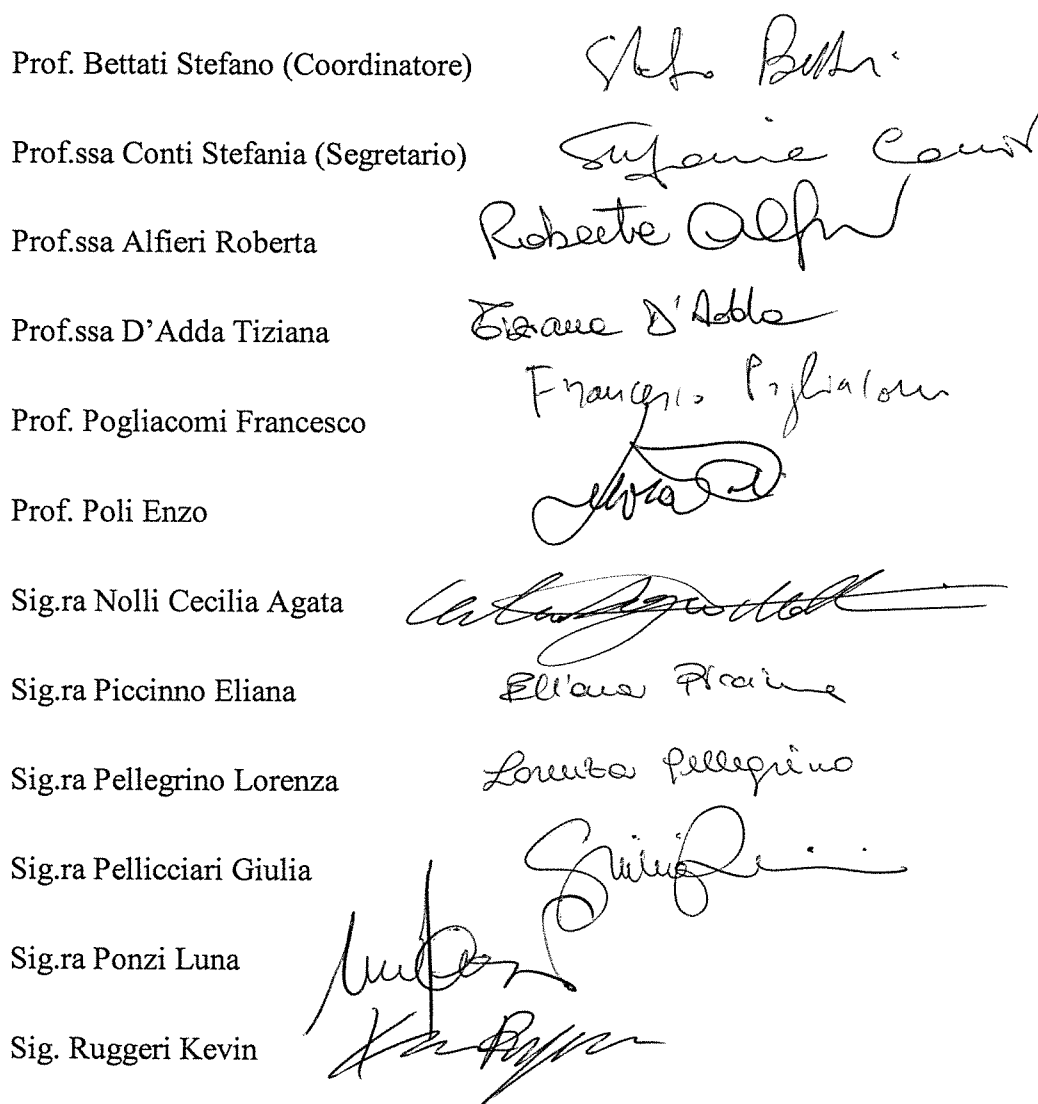 Prof. Bettati Stefano (Coordinatore)
Prof.ssa Conti Stefania (Segretario) Stefania Conti
Prof.ssa Alfieri Roberta Roberta Alfieri
Prof.ssa D'Adda Tiziana Tiziana D'Adda
Prof. Pogliacomi Francesco Francesco Pogliacomi
Prof. Poli Enzo
Sig.ra Nolli Cecilia Agata
Sig.ra Piccinno Eliana Eliana Piccinno
Sig.ra Pellegrino Lorenza Lorenza Pellegrino
Sig.ra Pellicciari Giulia Giulia
Sig.ra Ponzi Luna
Sig. Ruggeri Kevin